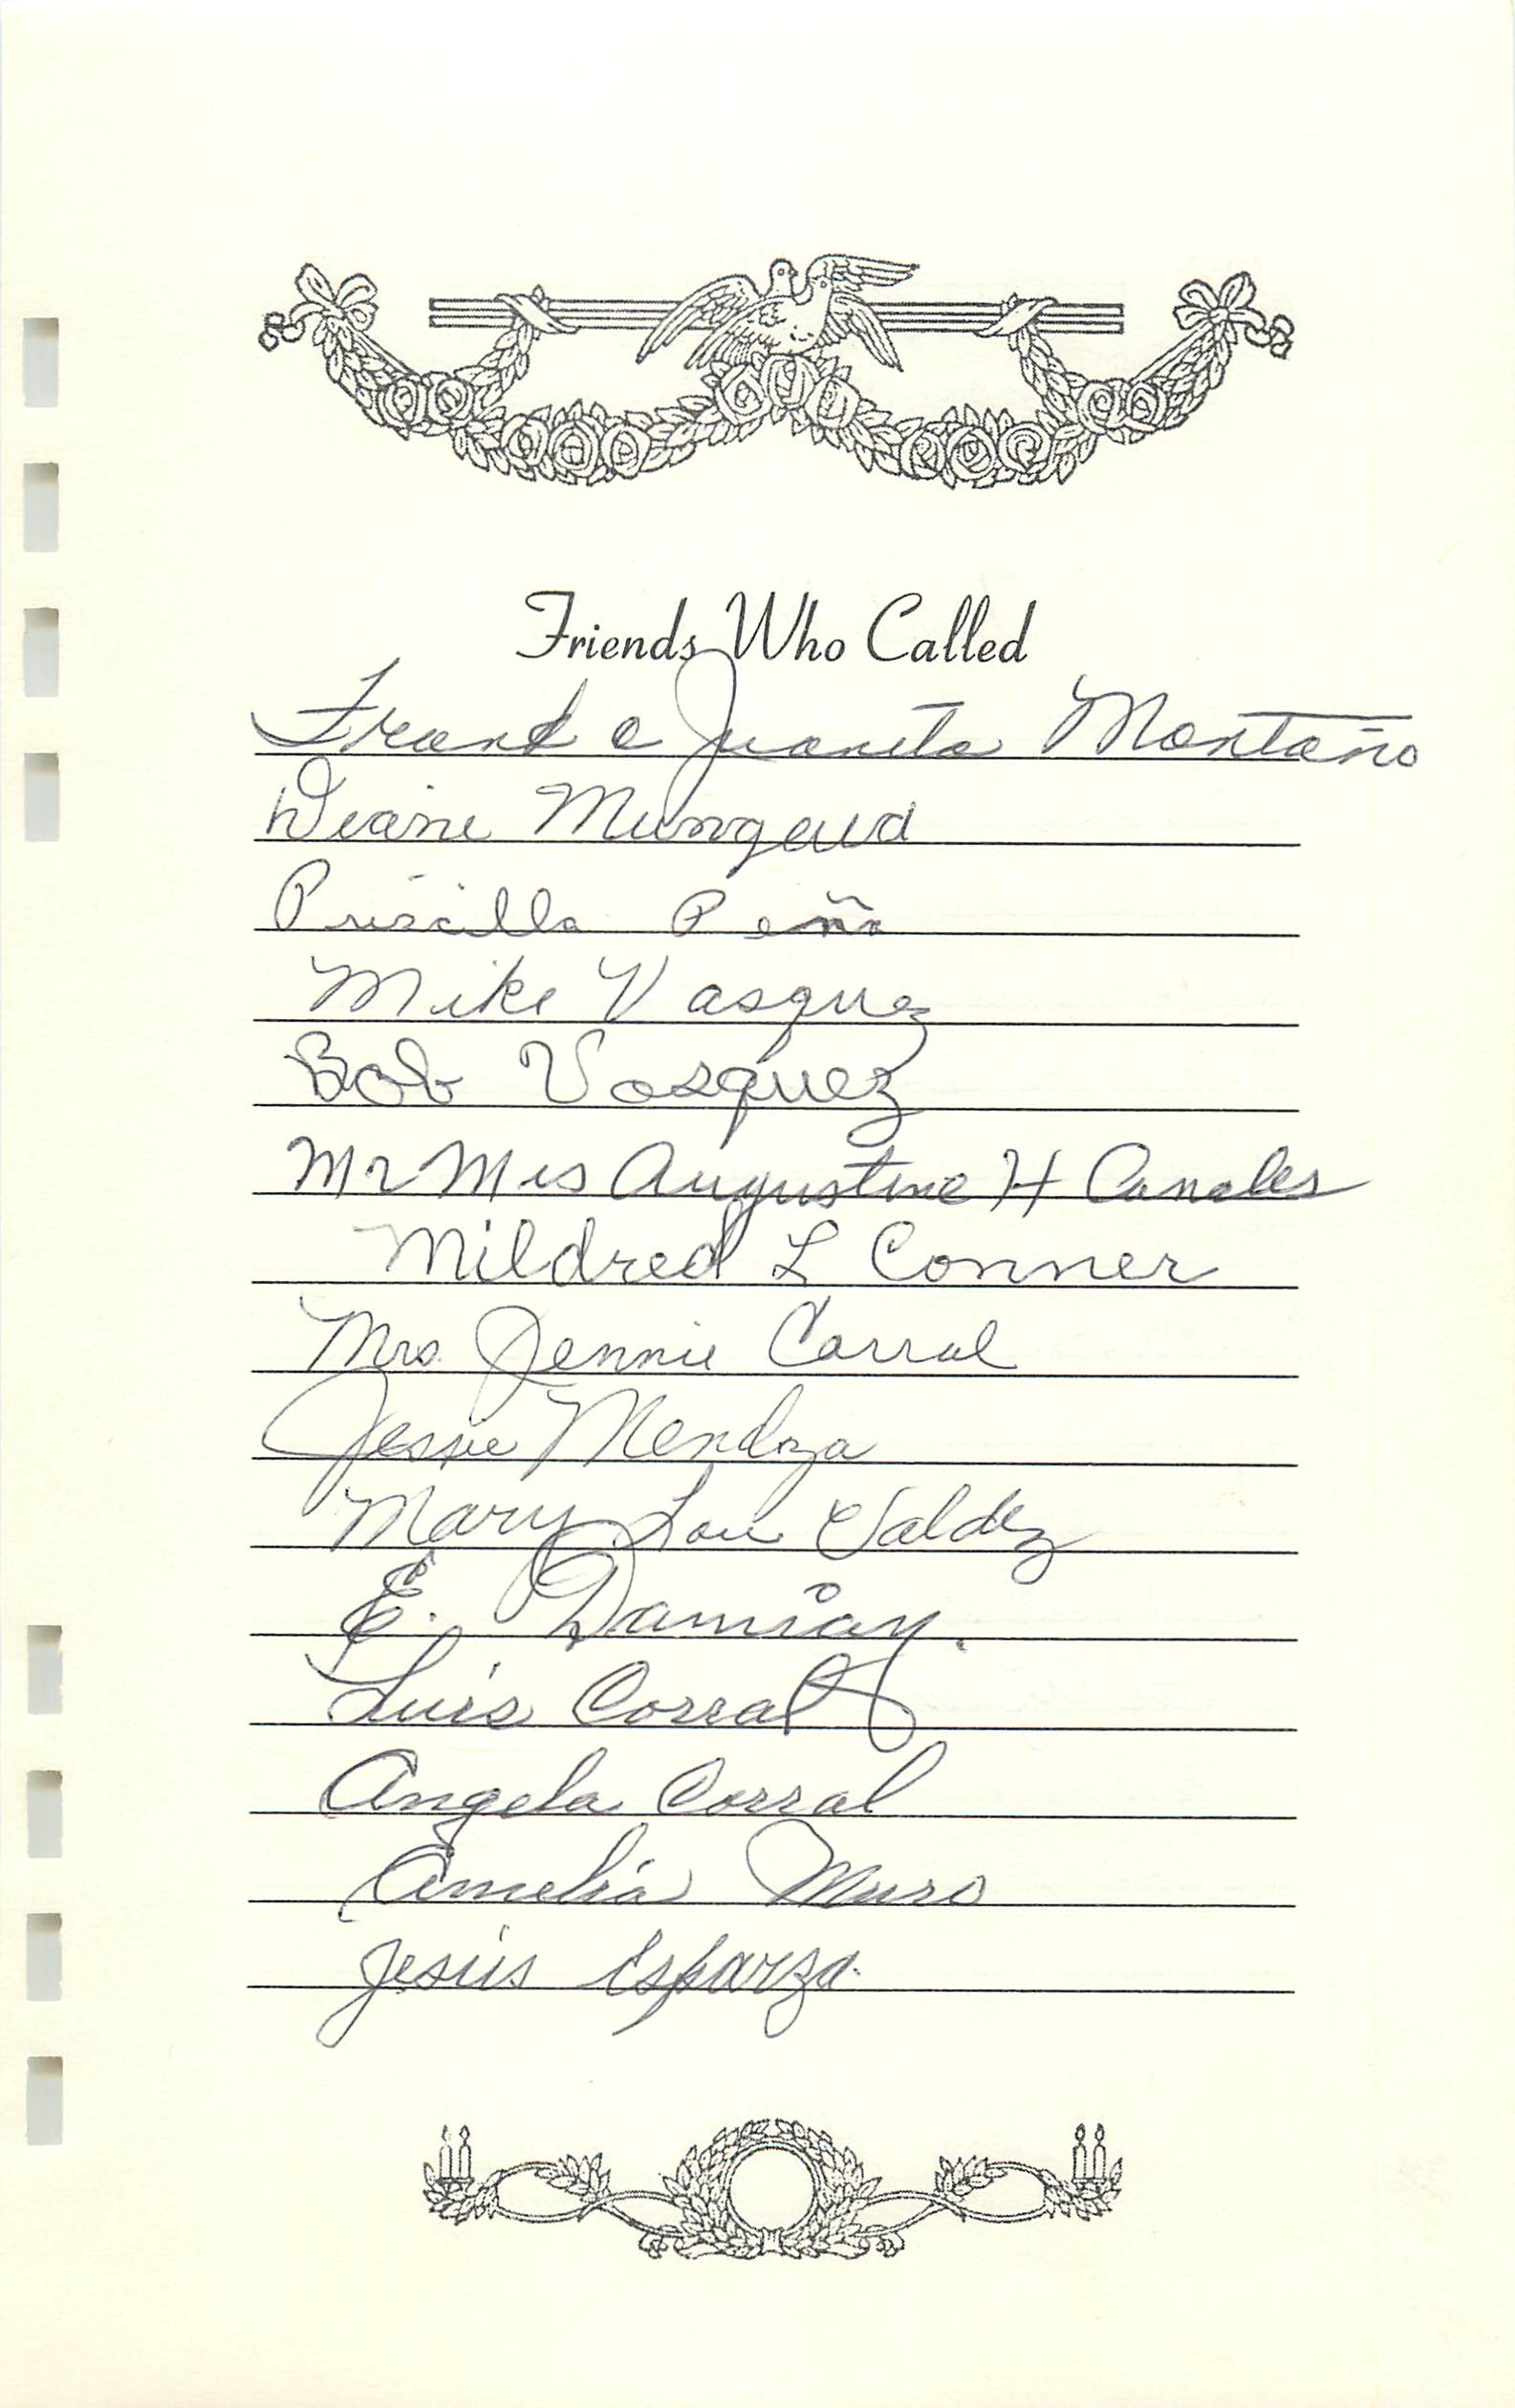 Friends Who Called
Frank e Juanita Montaño
Diane
Priscilla Peña
Mike Vasquez
Bob Vasquez
Mr Mrs Augustine H Canales
Mildred L Conner
Mrs. Jennie Corral
Jessie Mendoza
Mary Lou Valdez
E. Damian.
Luis Corral
Angela Corral
Amelia Muro
Jesús Esparza.